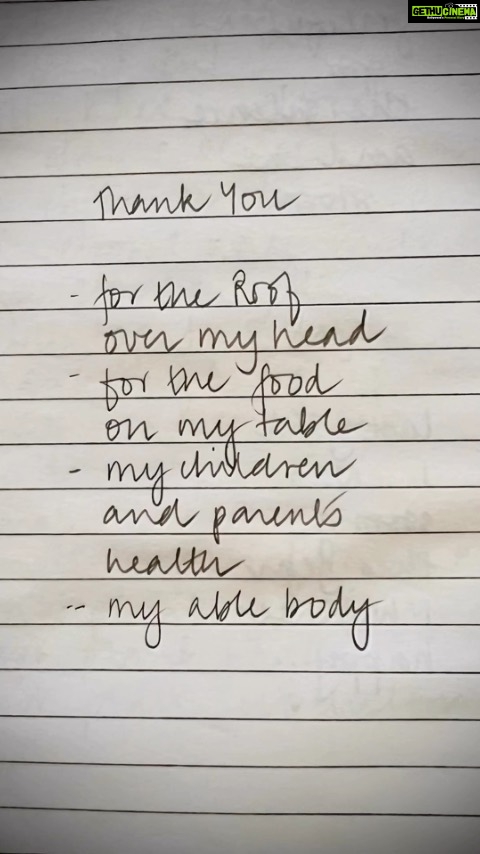 GETHU CINEMA
Thank You
- for the Roof
over my head
- for the food
on my table
- my children
and parents
health
-- my able body